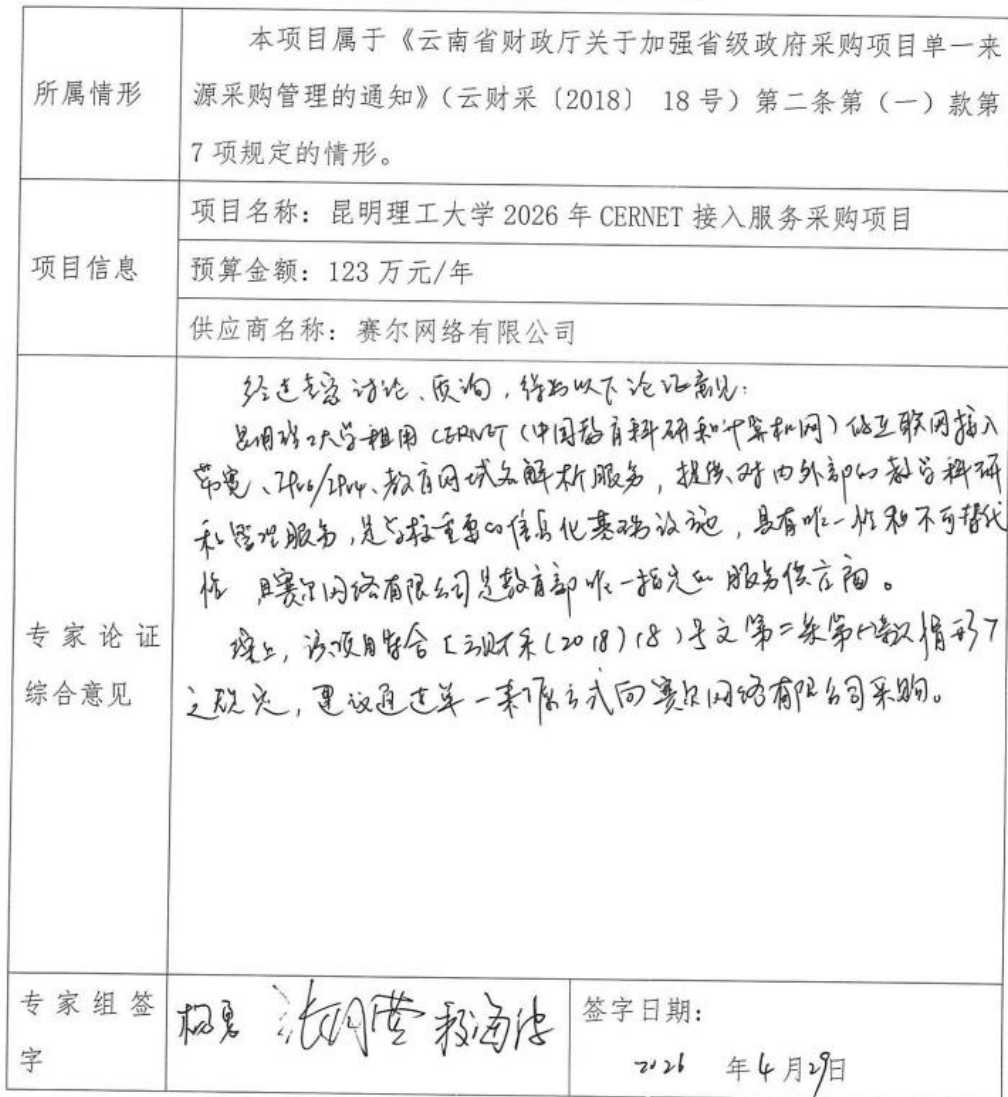 所属情形
本项目属于《云南省财政厅关于加强省级政府采购项目单一来
源采购管理的通知》(云财采〔2018〕 18号)第二条第(一)款第
7项规定的情形。
项目信息
项目名称:昆明理工大学2026年CERNET接入服务采购项目
预算金额:123万元/年
供应商名称:赛尔网络有限公司
专家论证
综合意见
经过专家讨论、质询,得出以下论证意见:
昆明理工大学租用CERNET(中国教育科研和计算机网)的互联网接入
带宽、IPv6/IPv4、教育网域名解析服务,提供对内外部的教学科研
和管理服务,是学校重要的信息化基础设施,具有唯一性和不可替代
性 且赛尔网络有限公司是教育部唯一指定的服务供应商。
综上,该项目符合[云财采(2018)18]号文第二条第(一)款情形7
之规定,建议通过单一来源方式向赛尔网络有限公司采购。
专家组签
字
签字日期:
2026 年4月29日